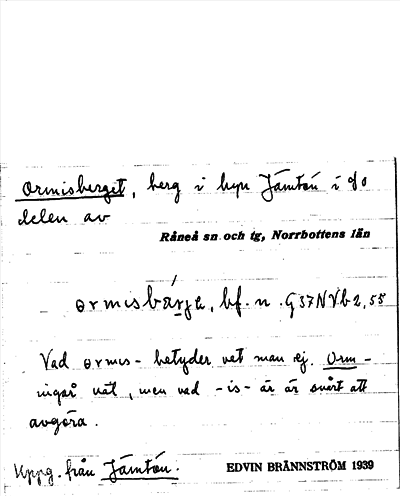 Ormisberget, berg i byn Jämtön i so
delen av
Råneå sn och tg, Norrbottens län
ormisbárje, bf. n. G 37 N V b 2, 55
Vad ormis- betyder vet man ej. Orm-
ingår väl, men vad -is- är är svårt att
avgöra.
Uppg. från Jämtön.
EDVIN BRÄNNSTRÖM 1939